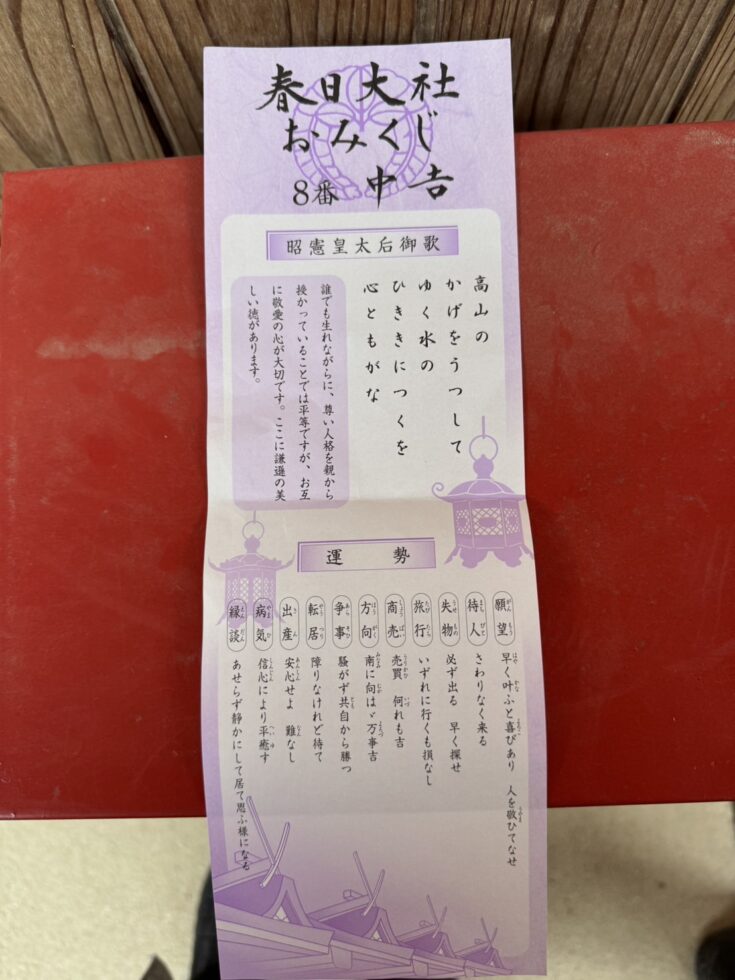 春日大社
おみくじ
8番 中吉
昭憲皇太后御歌
高山の
かげをうつして
ゆく水の
ひききにつくを
心ともがな
誰でも生れながらに、尊い人格を親から
授かっていることでは平等ですが、お互
に敬愛の心が大切です。ここに謙遜の美
しい徳があります。
運勢
願望 早く叶ふと喜びあり 人を敬ひてなせ
待人 さわりなく来る
失物 必ず出る 早く探せ
旅行 いずれに行くも損なし
商売 売買 何れも吉
方向 南に向はゞ万事吉
争事 騒がず共自から勝つ
転居 障りなけれど待て
出産 安心せよ 難なし
病気 信心により平癒す
縁談 あせらず静かにして居て思ふ様になる